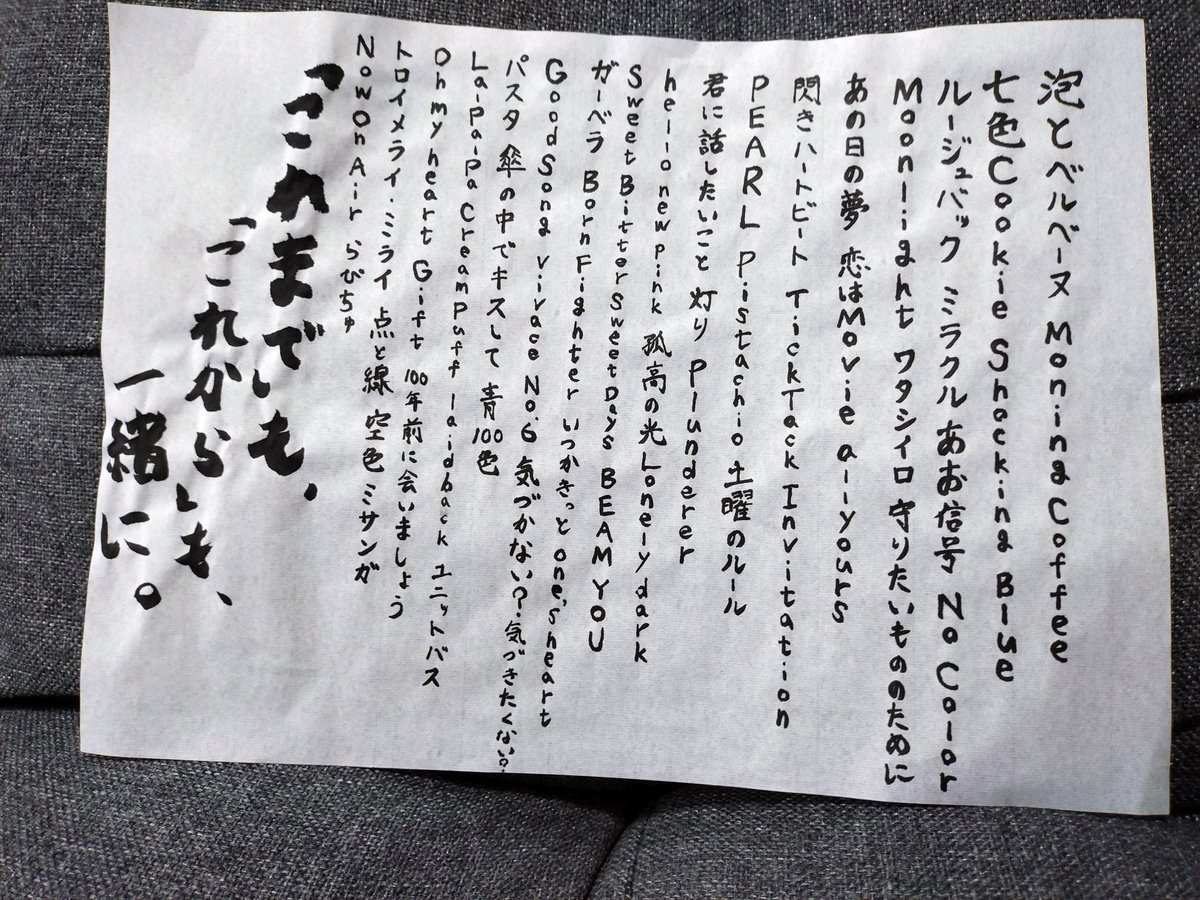 泡とベルベーヌ MoningCoffee
七色Cookie Shocking Blue
ルージュバック ミラクル あお信号 No Color
Moonlight ワタシイロ 守りたいもののために
あの日の夢 恋はMovie all-yours
閃きハートビート TickTack Invitation
PEARL Pistachio 土曜のルール
君に話したいこと 灯り Plunderer
hello new pink 孤高の光 Lonely dark
Sweet Bitter Sweet Days BEAM YOU
ガーベラ Born Fighter いつかきっと one's heart
Good Song virace No.6 気づかない?気づきたくない?
パスタ 傘の中でキスして 青100色
La-Pa-Pa Cream puff laidback ユニットバス
Oh my heart Gift 100年前に会いましょう
トロイメライ・ミライ 点と線 空色 ミサンガ
Now On Air らびちゅ
「これまで」も、
「これから」も、
一緒に。